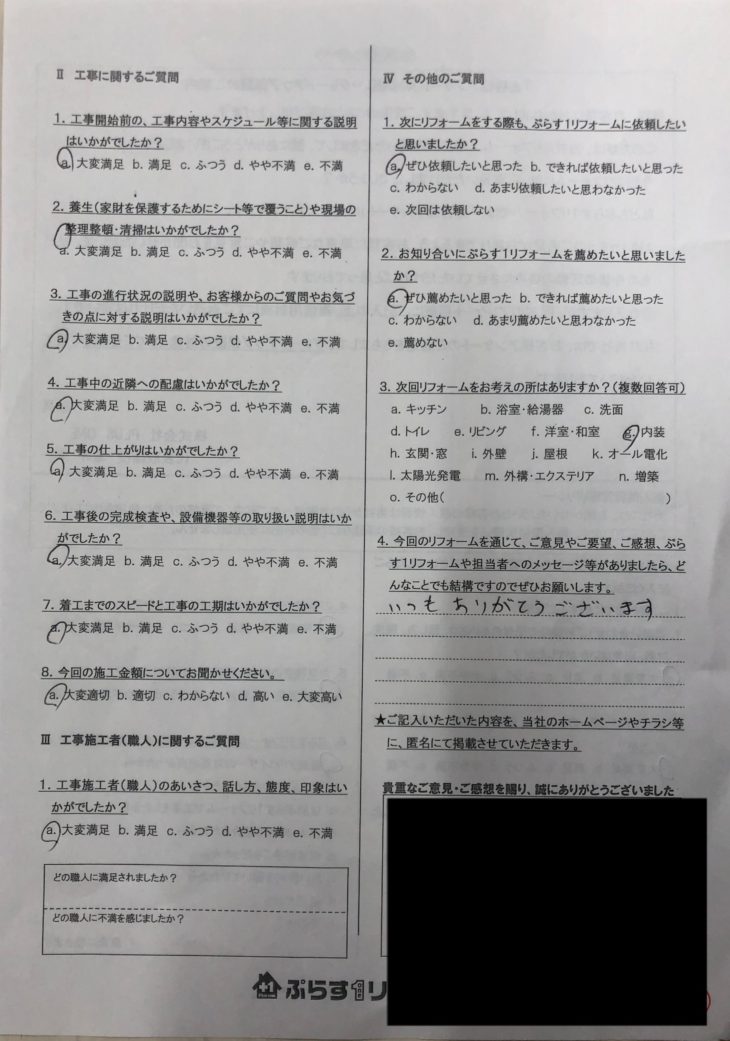 Ⅱ 工事に関するご質問
1. 工事開始前の、工事内容やスケジュール等に関する説明
はいかがでしたか？
a. 大変満足 b. 満足 c. ふつう d. やや不満 e. 不満
2. 養生(家財を保護するためにシート等で覆うこと)や現場の
整理整頓・清掃はいかがでしたか？
a. 大変満足 b. 満足 c. ふつう d. やや不満 e. 不満
3. 工事の進行状況の説明や、お客様からのご質問やお気づ
きの点に対する説明はいかがでしたか？
a. 大変満足 b. 満足 c. ふつう d. やや不満 e. 不満
4. 工事中の近隣への配慮はいかがでしたか？
a. 大変満足 b. 満足 c. ふつう d. やや不満 e. 不満
5. 工事の仕上がりはいかがでしたか？
a. 大変満足 b. 満足 c. ふつう d. やや不満 e. 不満
6. 工事後の完成検査や、設備機器等の取り扱い説明はいか
がでしたか？
a. 大変満足 b. 満足 c. ふつう d. やや不満 e. 不満
7. 着工までのスピードと工事の工期はいかがでしたか？
a. 大変満足 b. 満足 c. ふつう d. やや不満 e. 不満
8. 今回の施工金額についてお聞かせください。
a. 大変適切 b. 適切 c. わからない d. 高い e. 大変高い
Ⅲ 工事施工者(職人)に関するご質問
1. 工事施工者(職人)のあいさつ、話し方、態度、印象はい
かがでしたか？
a. 大変満足 b. 満足 c. ふつう d. やや不満 e. 不満
どの職人に満足されましたか？
どの職人に不満を感じましたか？
Ⅳ その他のご質問
1. 次にリフォームをする際も、ぷらす1リフォームに依頼したい
と思いましたか？
a. ぜひ依頼したいと思った b. できれば依頼したいと思った
c. わからない d. あまり依頼したいと思わなかった
e. 次回は依頼しない
2. お知り合いにぷらす1リフォームを薦めたいと思いました
か？
a. ぜひ薦めたいと思った b. できれば薦めたいと思った
c. わからない d. あまり薦めたいと思わなかった
e. 薦めない
3. 次回リフォームをお考えの所はありますか？(複数回答可)
a. キッチン b. 浴室・給湯器 c. 洗面
d. トイレ e. リビング f. 洋室・和室 g. 内装
h. 玄関・窓 i. 外壁 j. 屋根 k. オール電化
l. 太陽光発電 m. 外構・エクステリア n. 増築
o. その他( )
4. 今回のリフォームを通じて、ご意見やご要望、ご感想、ぷら
す1リフォームや担当者へのメッセージ等がありましたら、ど
んなことでも結構ですのでぜひお願いします。
いつもありがとうございます
★ご記入いただいた内容を、当社のホームページやチラシ等
に、匿名にて掲載させていただきます。
貴重なご意見・ご感想を賜り、誠にありがとうございました
ぷらす1リ